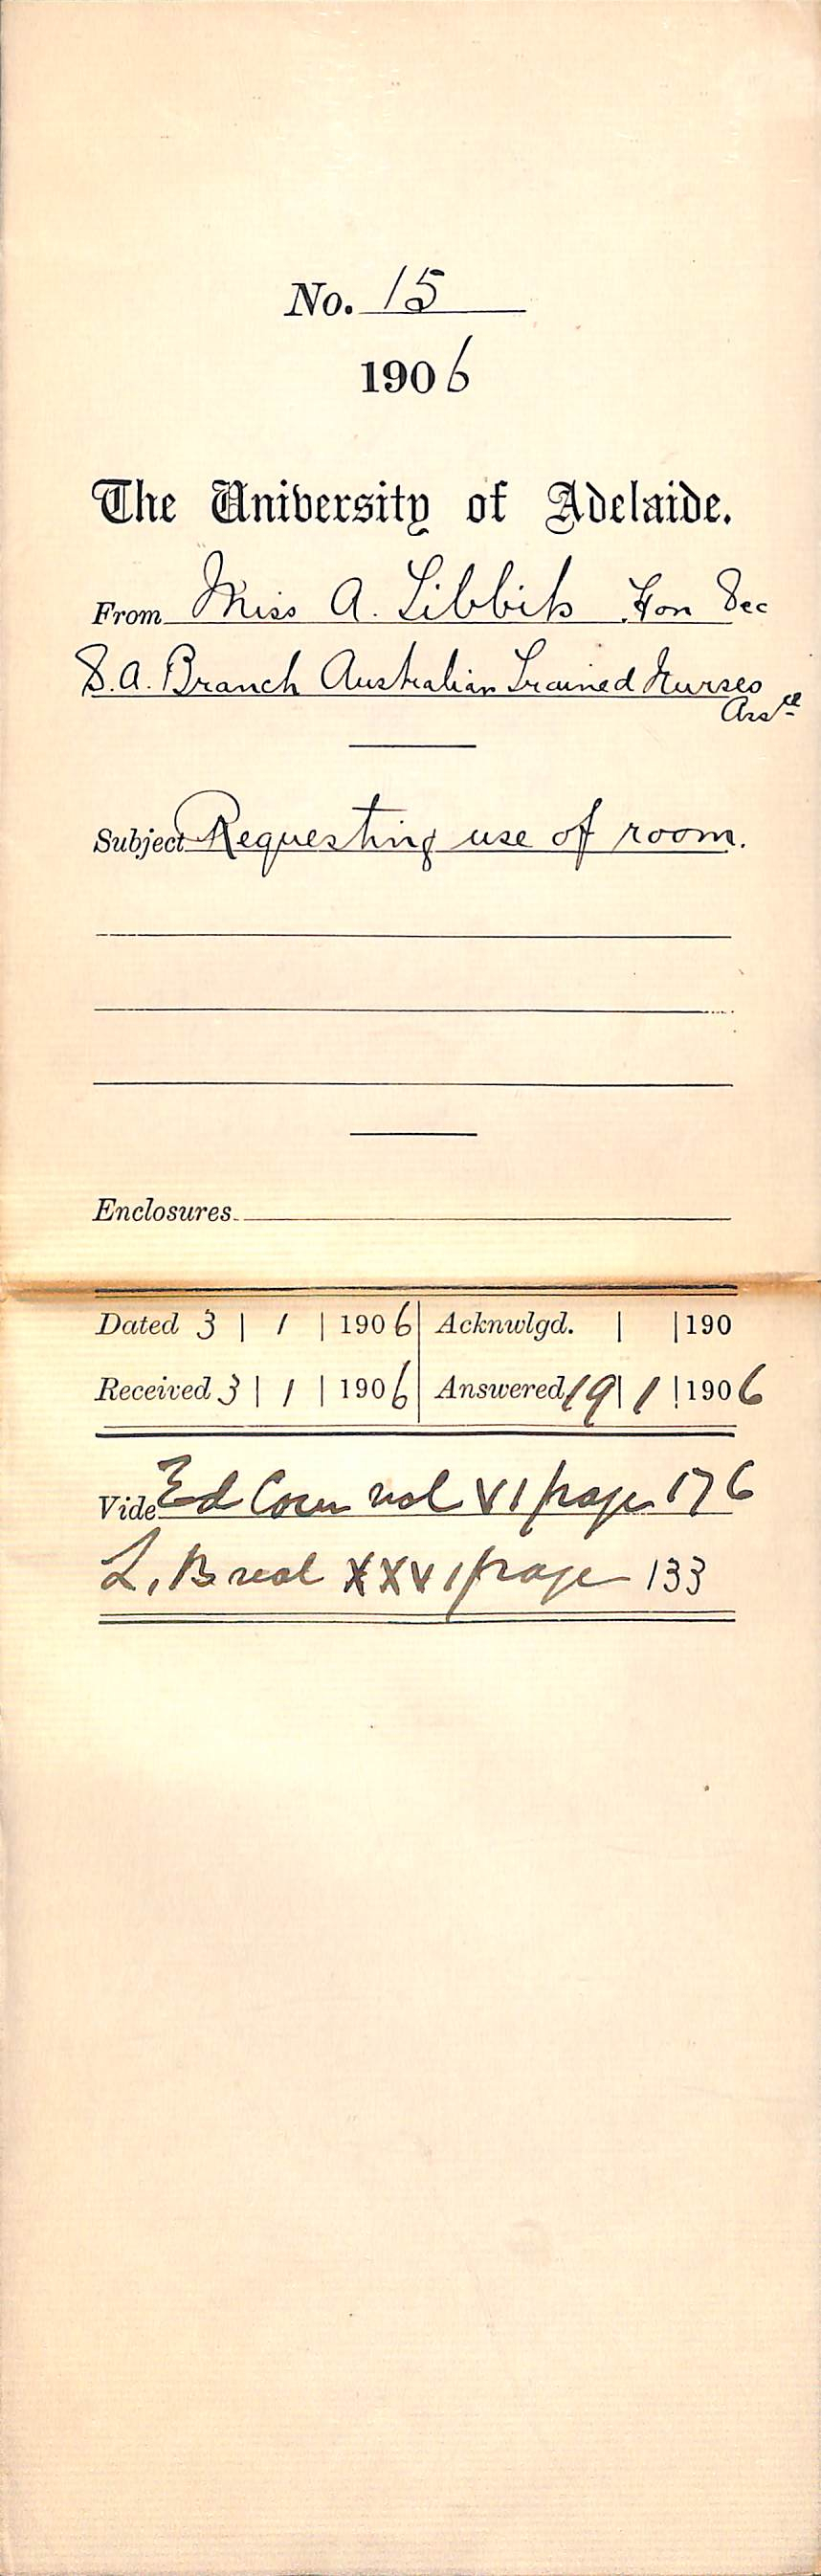 No. 15
1906
The University of Adelaide.
From Miss A. Sibbits Hon Sec
S.A. Branch Australian Trained Nurses
Subject Requesting use of room.
Enclosures
Dated 3 | 1 | 1906 | Acknwlgd. | | 190
Received 3 | 1 | 1906 | Answered 19 | 1 | 1906
Vide Ed Com vol VI page 176
L. B vol XXVI page 133